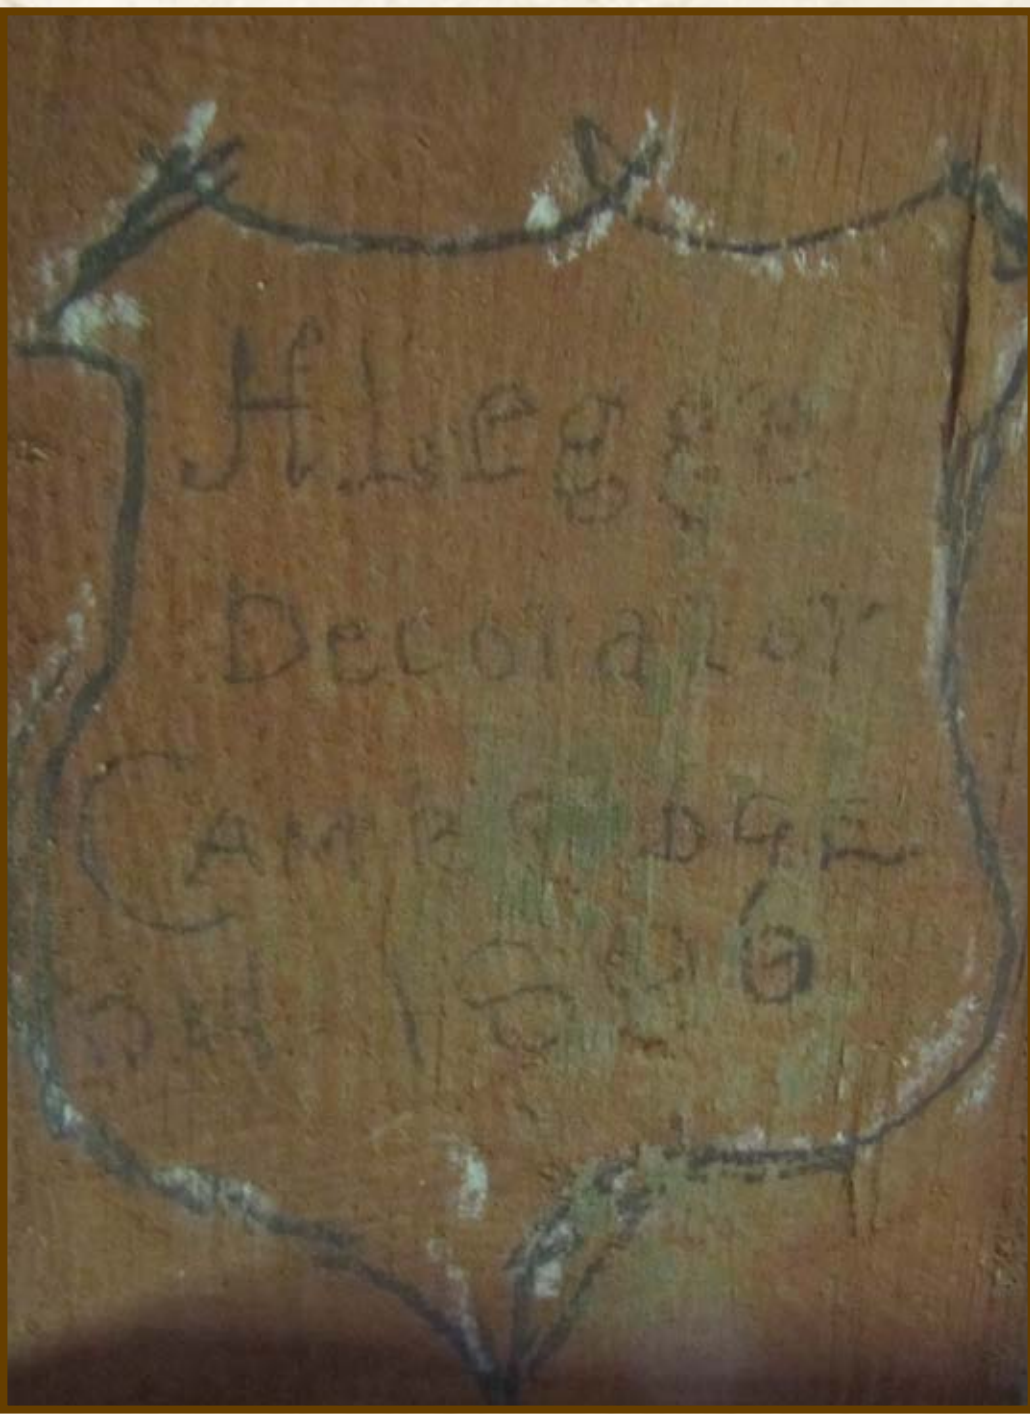 H. Legge
Decorator
CAMBRIDGE